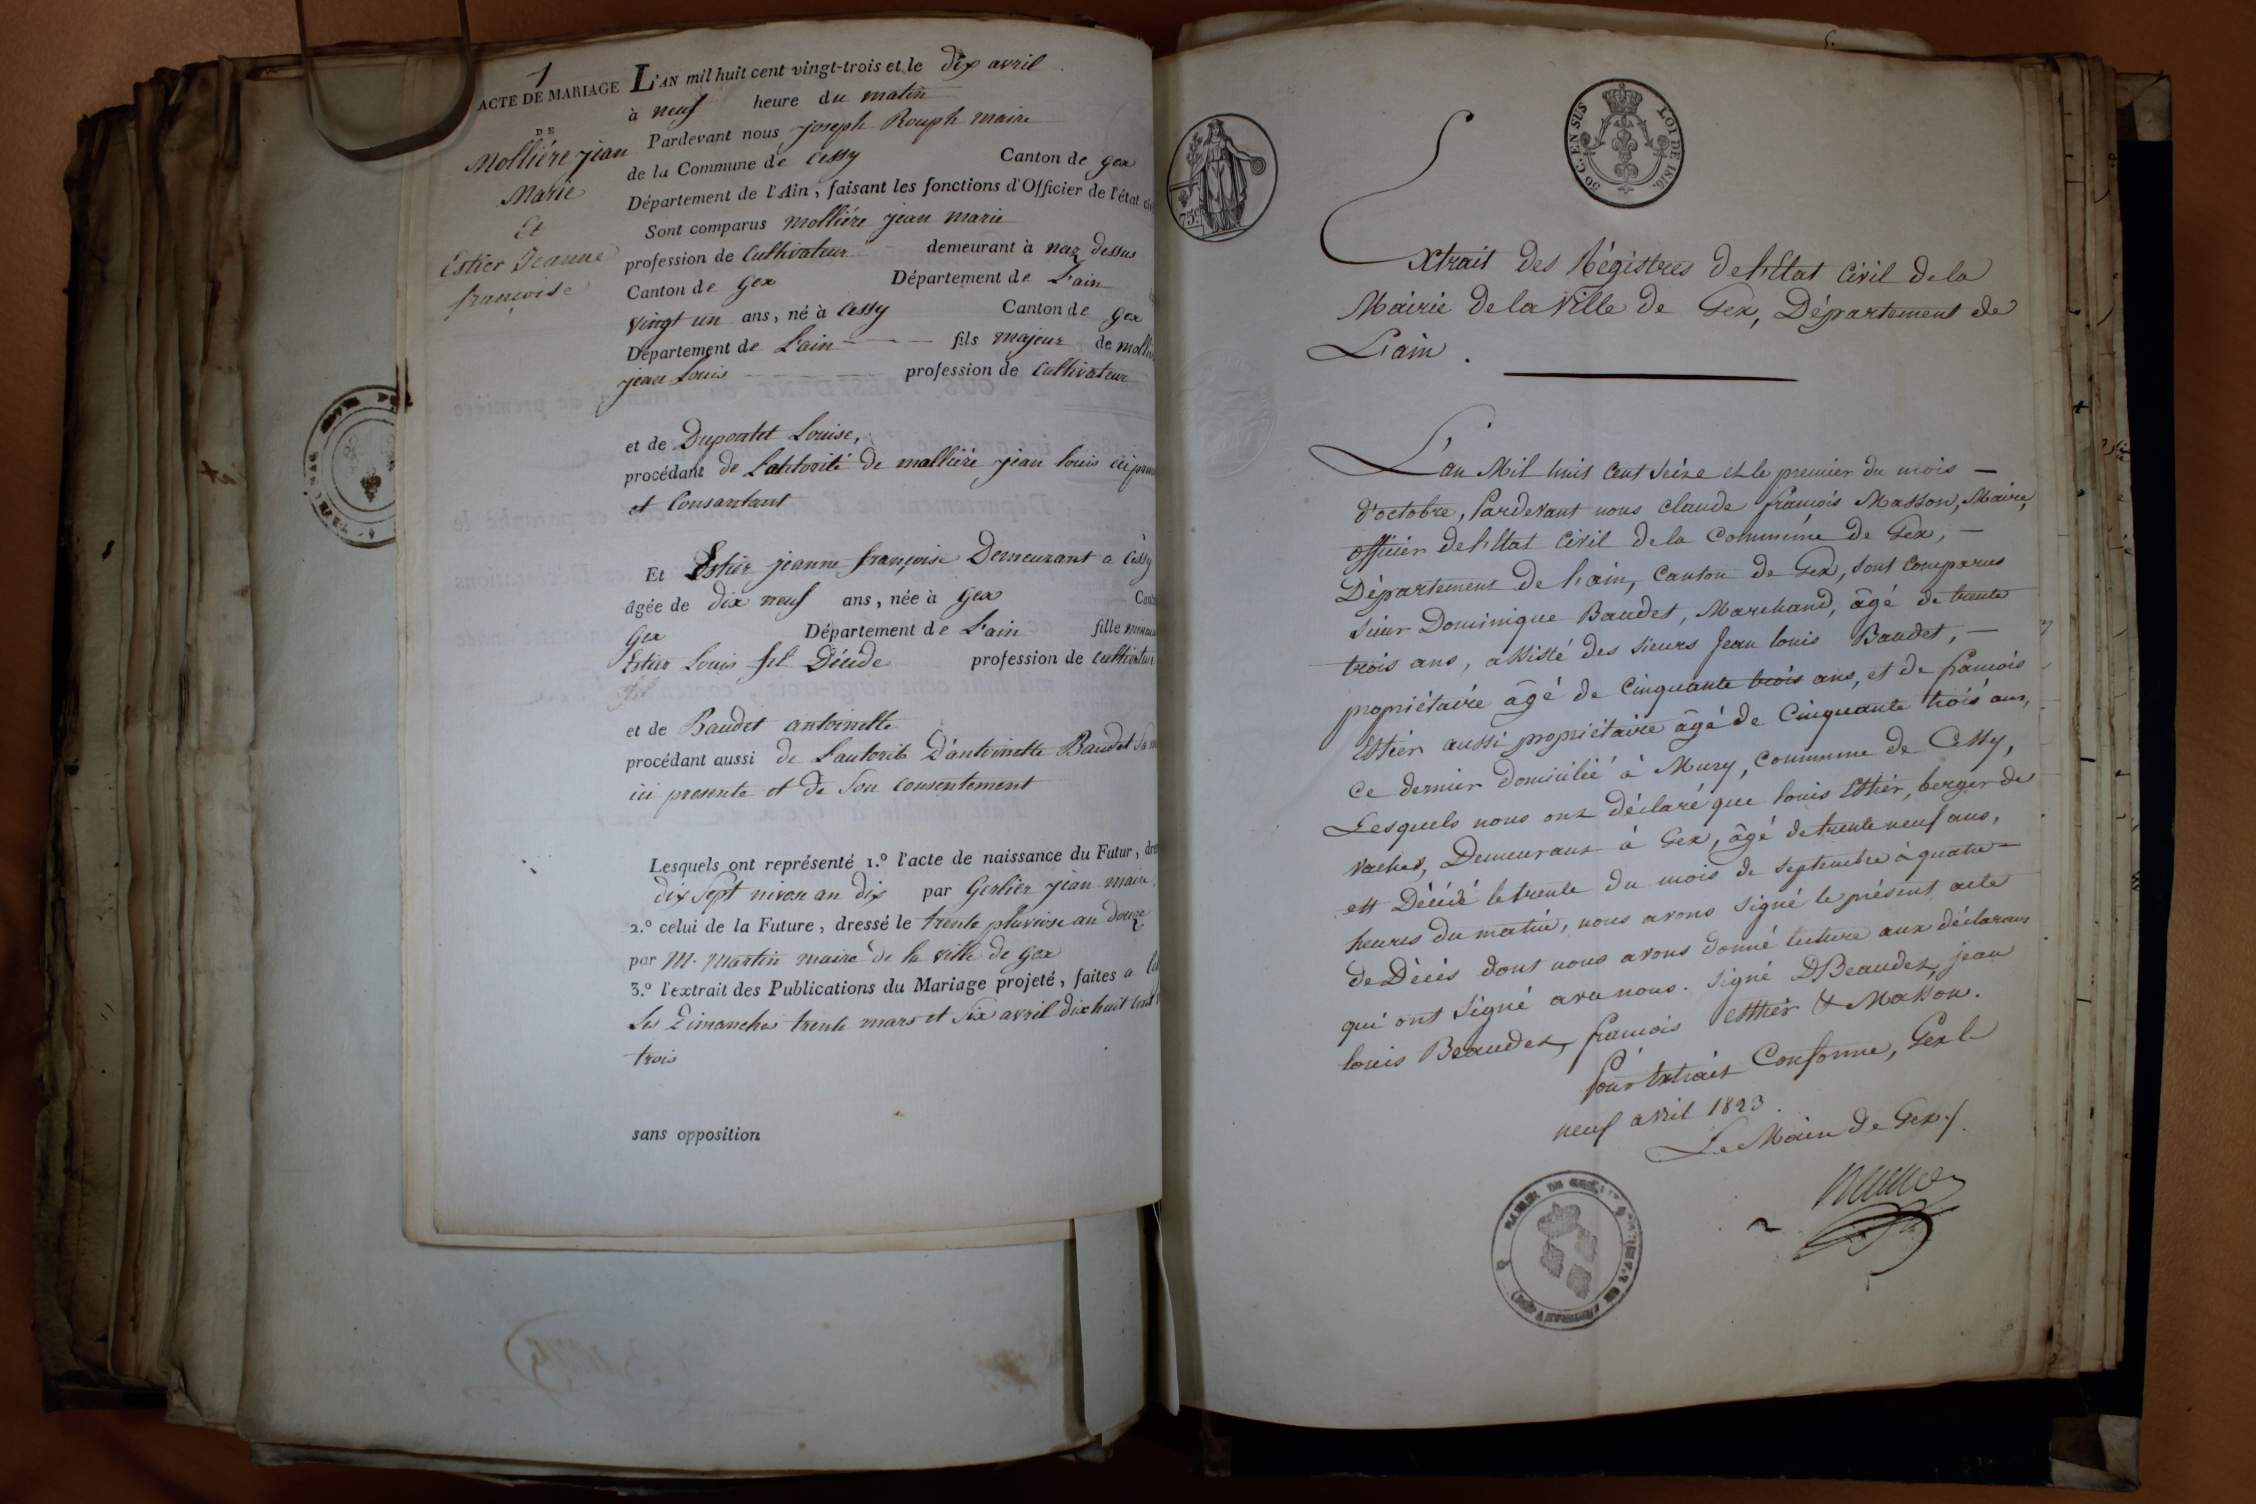 1
ACTE DE MARIAGE
DE
Mollière jean
Marie
Et
Estier Jeanne
françoise
L'AN mil huit cent vingt-trois et le dix avril
à neuf heure du matin
Pardevant nous joseph Rouph maire
de la Commune de Cessy Canton de gex
Département de l'Ain, faisant les fonctions d'Officier de l'état
Sont comparus mollière jean marie
profession de Cultivateur demeurant à naz dessus
Canton de gex Département de L'ain
vingt un ans, né à Cessy Canton de gex
Département de L'ain fils majeur de
jean Louis profession de Cultivateur
et de Dupontet Louise,
procédant de Lauttorité de mallière jean louis
et Consantant
Et Estier jeanne françoise Demeurant a Cessy
âgée de dix neuf ans, née à gex
Gex Département de L'ain fille
Estier Louis Décéde profession de Cultivateur
et de Baudet antoinette
procédant aussi de Lautorite D'antoinette Baudet
ici presente et de Son consentement
Lesquels ont représenté 1.º l'acte de naissance du Futur,
dix Sept nivose an dix par Gerlier jean maire
2.º celui de la Future, dressé le trente pluviose an douze
par M. Martin maire de la ville de gex
3.º l'extrait des Publications du Mariage projeté, faites a
Les Dimanches trente mars et Six avril dix huit cent
trois
sans opposition
75c
50 C. EN SUS LOI DE 1816.
Extrait des Régistres de l'Etat Civil de la
Mairie de la Ville de Gex, Département de
L'ain.
L'an Mil huit Cent Seize et le premier du mois —
d'octobre, Pardevant nous Claude françois Masson, Maire,
officier de l'Etat Civil de la Commune de Gex, —
Département de l'ain, Canton de Gex, sont Comparus
sieur Dominique Baudet, Marchand, âgé de trente
trois ans, assisté des sieurs Jean louis Baudet, —
propriétaire âgé de Cinquante trois ans, et de françois
Esthier aussi propriétaire âgé de Cinquante trois ans,
Ce dernier domicilié à Mury, Commune de Cessy,
Lesquels nous ont déclaré que louis Esthier, berger de
vaches, Demeurant à Gex, âgé de trente neuf ans,
est Décédé le trente du mois de septembre à quatre
heures du matin, nous avons signé le présent acte
de Décès dont nous avons donné lecture aux déclarans
qui ont signé avec nous. signé DBeaudet, jean
louis Beaudet, françois esthier & Masson.
Pour Extrait Conforme, Gex le
neuf avril 1823.
Le Maire de Gex